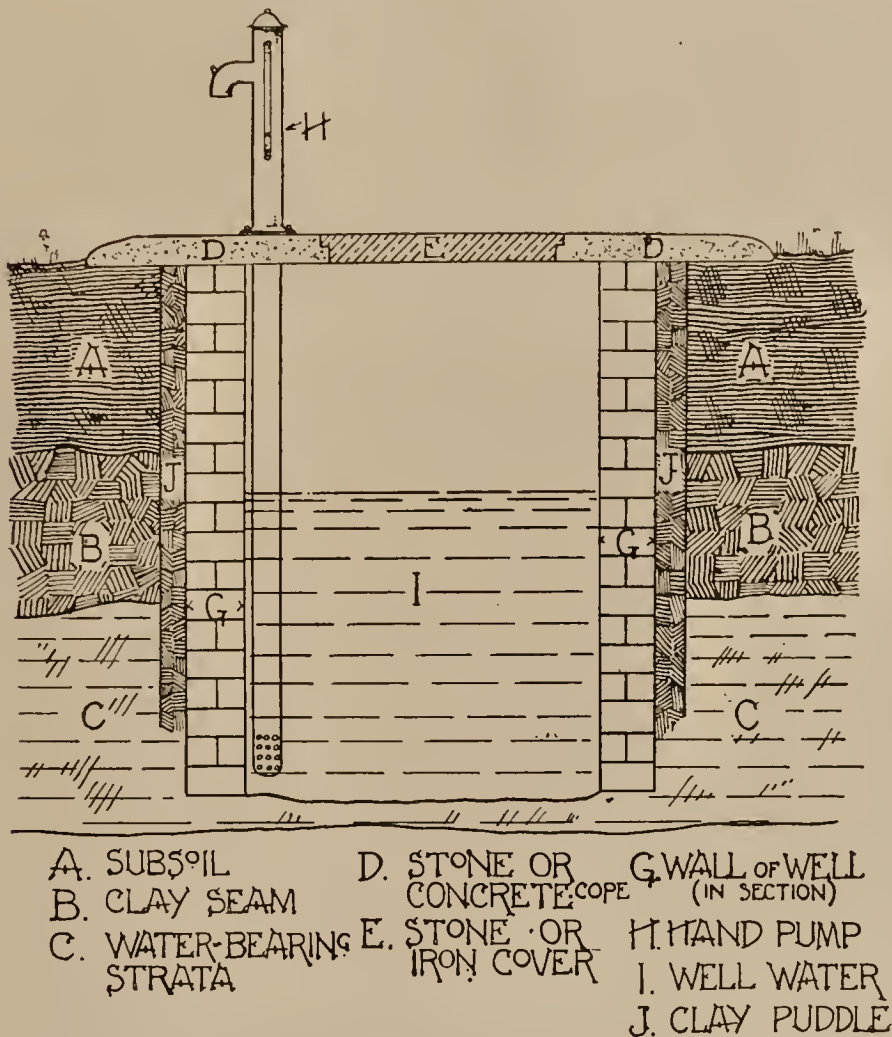 H
D E D
A A
J J
B B
G G
I
C C
A. SUBSOIL
B. CLAY SEAM
C. WATER-BEARING
STRATA
D. STONE OR
CONCRETE COPE
E. STONE OR
IRON COVER
G. WALL OF WELL
(IN SECTION)
H. HAND PUMP
I. WELL WATER
J. CLAY PUDDLE